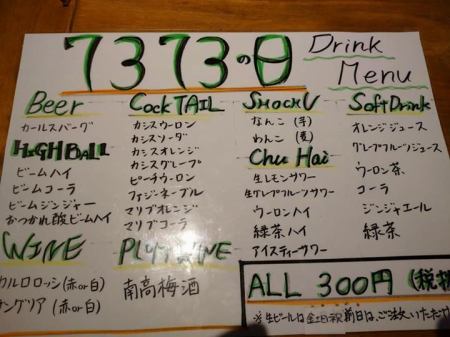 7373の日
Drink
Menu
Beer
カールスバーグ
HIGHBALL
ビームハイ
ビームコーラ
ビームジンジャー
おつかれ酸ビームハイ
WINE
カルロロッシ(赤or白)
サングリア(赤or白)
COCKTAIL
カシスウーロン
カシスソーダ
カシスオレンジ
カシスグレープ
ピーチウーロン
ファジーネーブル
マリブオレンジ
マリブコーラ
PLUMWINE
南高梅酒
SHOCHU
なんこ(芋)
わんこ(麦)
Chu Hai
生レモンサワー
生グレプフルーツサワー
ウーロンハイ
緑茶ハイ
アイスティーサワー
Soft Drink
オレンジジュース
グレープフルーツジュース
ウーロン茶
コーラ
ジンジャエール
緑茶
ALL 300円(税抜
※生ビールは金・土・日・祝前日は、ご注文いただけ